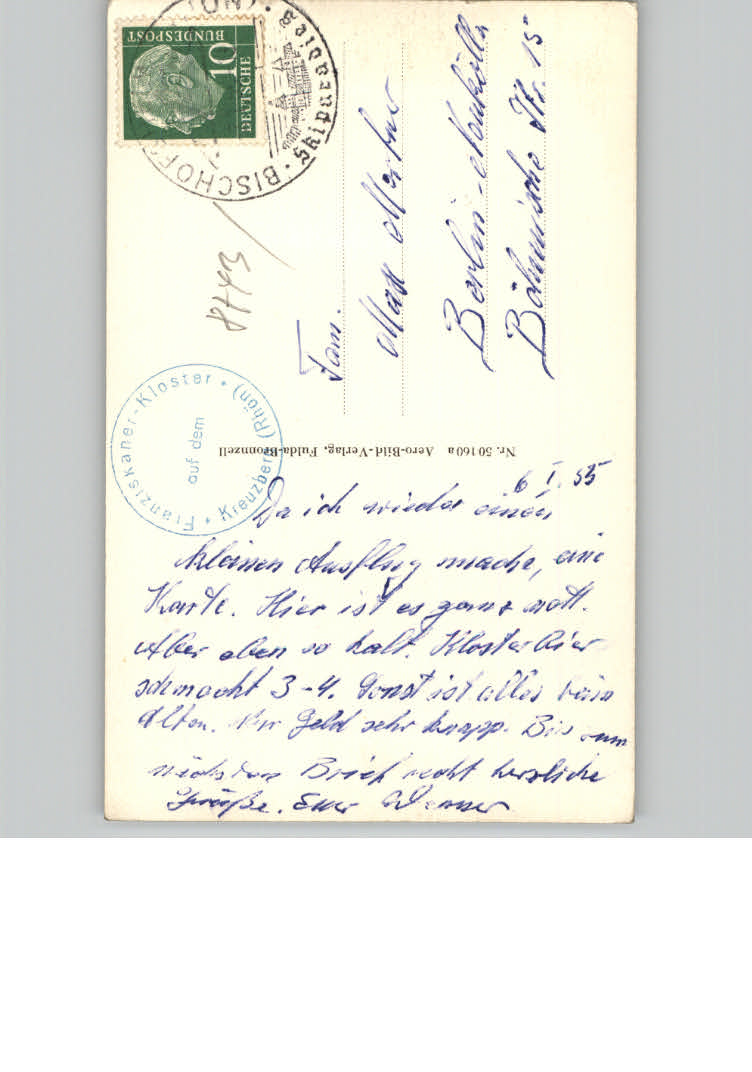 DEUTSCHE
BUNDESPOST
10
BISCHOFS
Skiparadies
8743
Fam.
Max
Berlin-Neukölln
Böhmische Str. 15
Franziskaner-Kloster
auf dem
Kreuzberg (Rhön)
Nr. 50160a Aero-Bild-Verlag, Fulda-Bronnzell
6. I. 55
Da ich wieder einen
kleinen Ausflug mache, eine
Karte. Hier ist es ganz nett.
Aber eben so kalt. Kloster Bier
schmeckt 3-4. Sonst ist alles beim
Alten. Nur Geld sehr knapp. Bis zum
nächsten Brief recht herzliche
Grüße. Euer Werner